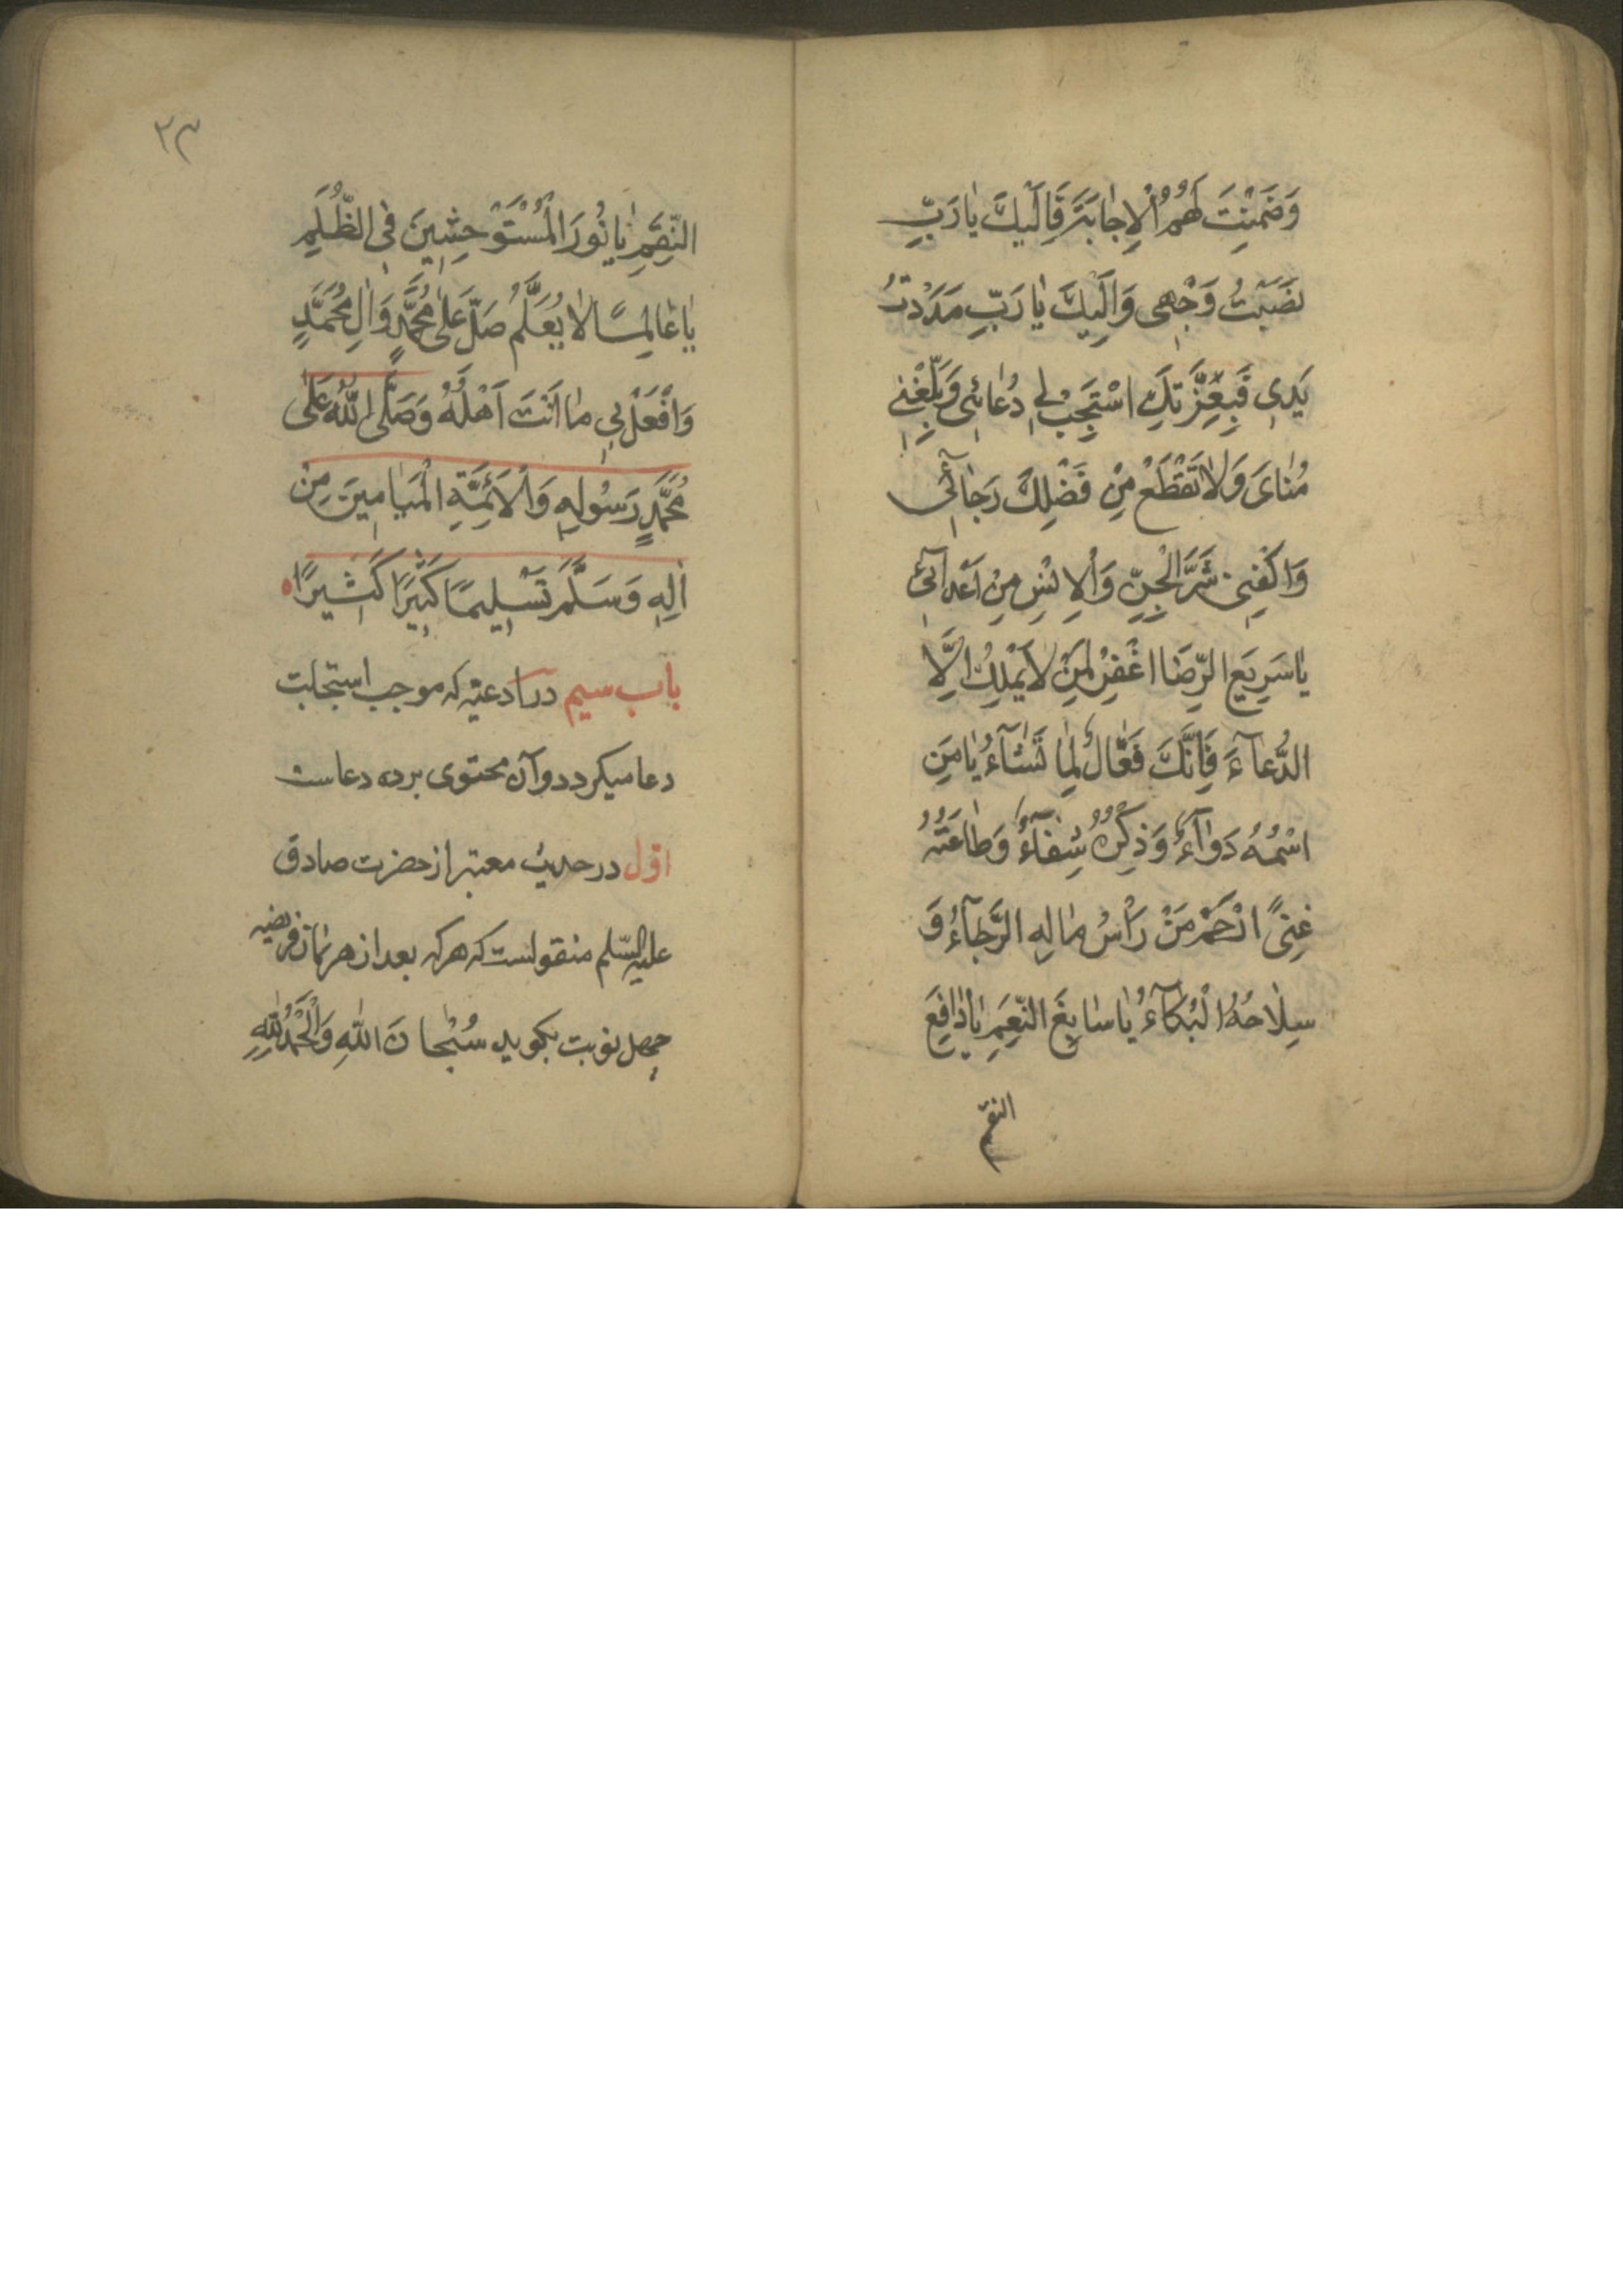 وَضَمِنْتَ لَهُمُ الْاِجٰابَةَ فَاِلَيْكَ يٰا رَبِّ
نَصَبْتُ وَجْهِى وَاِلَيْكَ يٰا رَبِّ مَدَدْتُ
يَدِى فَبِعِزَّتِكَ اسْتَجِبْ لِى دُعٰائِى وَبَلِّغْنِى
مُنٰاىَ وَلٰا تَقْطَعْ مِنْ فَضْلِكَ رَجٰآئِى
وَاكْفِنِى شَرَّ الْجِنِّ وَالْاِنْسِ مِنْ اَعْدٰآئِى
يٰا سَرِيعَ الرِّضٰا اغْفِرْ لِمَنْ لٰا يَمْلِكُ اِلَّا
الدُّعٰآءَ فَاِنَّكَ فَعّٰالٌ لِمٰا تَشٰآءُ يٰا مَنِ
اسْمُهُ دَوٰآءٌ وَذِكْرُهُ شِفٰآءٌ وَطٰاعَتُهُ
غِنىً ارْحَمْ مَنْ رَأْسُ مٰالِهِ الرَّجٰآءُ وَ
سِلٰاحُهُ الْبُكٰآءُ يٰا سٰابِغَ النِّعَمِ يٰا دٰافِعَ
النقم
٢٣
النِّقَمِ يٰا نُورَ الْمُسْتَوْحِشِينَ فِى الظُّلَمِ
يٰا عٰالِمًا لٰا يُعَلَّمُ صَلِّ عَلٰى مُحَمَّدٍ وَاٰلِ مُحَمَّدٍ
وَافْعَلْ بِى مٰا اَنْتَ اَهْلُهُ وَصَلَّى اللّٰهُ عَلٰى
مُحَمَّدٍ رَسُولِهِ وَالْاَئِمَّةِ الْمَيٰامِينَ مِنْ
اٰلِهِ وَسَلَّمَ تَسْلِيمًا كَبِيرًا كَثِيرًا
باب سیم در ادعیه که موجب استجابت
دعا میکردد و آن محتوی برده دعاست
اوّل در حدیث معتبر از حضرت صادق
علیه السّلم منقولست که هر که بعد از هر نماز فریضه
چهل نوبت بکوید سُبْحٰانَ اللّٰهِ وَالْحَمْدُ لِلّٰهِ